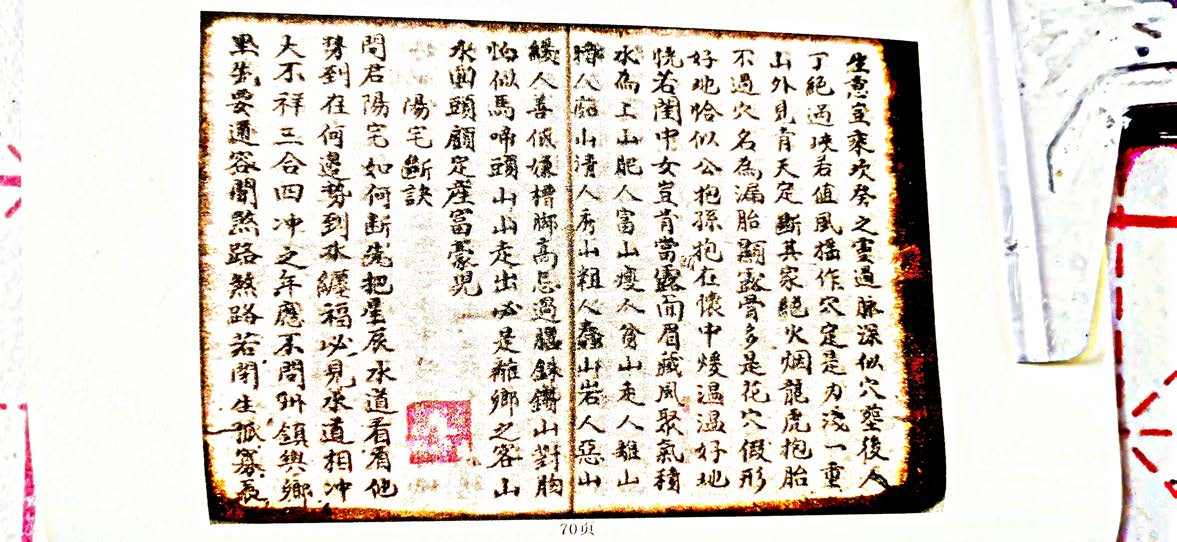 生意宜乘坎癸之靈過脉深似穴塟後人
丁絶過峽若值風搖作穴定是力淺一重
山外見青天定斷其家絶火烟龍虎抱胎
不過穴名為漏胎顯露骨多是花穴假形
好地恰似公抱孫抱在懷中煖温温好地
恍若閨中女豈肯當露面眉藏風聚氣積
水為上山肥人富山瘦人貧山走人離山
人山清人秀山粗人蠢山岩人惡山
緩人善低嫌槽脚高忌過腮銖鑼山對胸
怕似馬啼頭山山走出必是離鄉之客山
水回頭顧定産富豪兒
陽宅斷訣
問君陽宅如何断先把星辰水道看看他
勢到在何邉勢到水纏福必見水道相冲
大不祥三合四冲之年應不問州鎮與鄉
里先要通容閙煞路煞路若閉生孤寡辰
70页